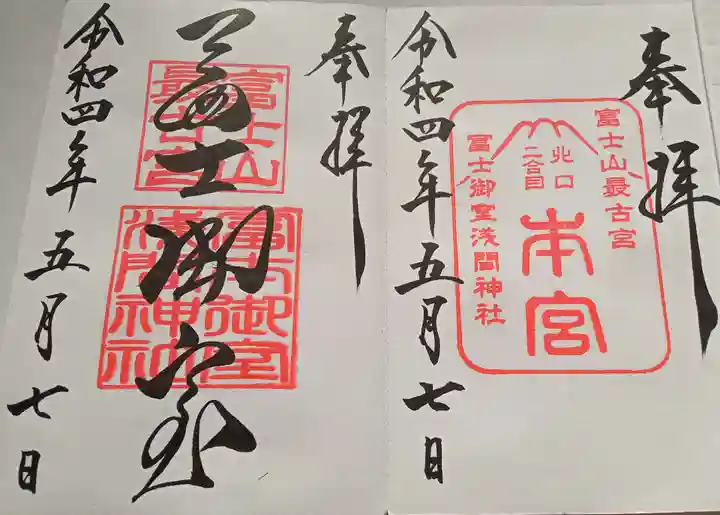 奉拝
富士山最古宮
北口
二合目
本宮
冨士御室浅間神社
令和四年五月七日
奉拝
富士山
最古宮
冨士御室
浅間神社
冨士御室
令和四年五月七日